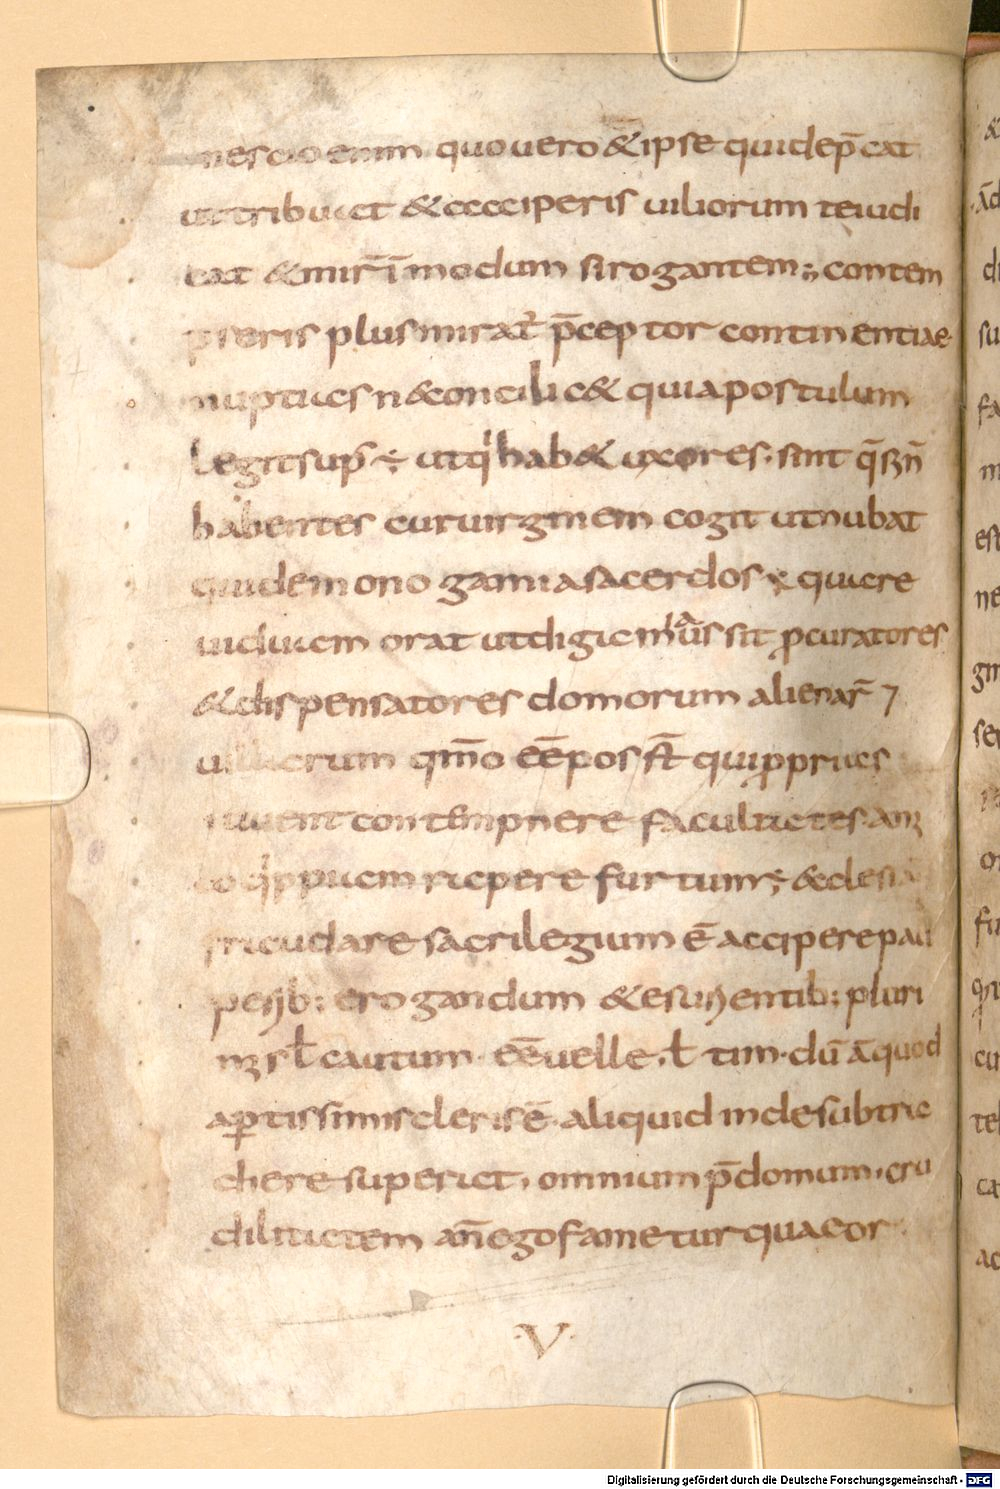 nescio enim quo uero & ipse qui dep̄cat
ut tribuat & acciperis uiliorem te iudi
cat & mir̄ ī modum si rogantem; contem
pseris plus mirat᷑ p̄ceptor continentiae
nuptias n̄ conciliet qui apostulum
legit sup̄ ÷ ut qͥ hab& uxores. sint q̄si n̄
habentes cur uirginem cogit ut nubat
qui de monogamia sacerdos ÷ quare
uiduam orat ut digam sit ꝓcuratores
& dispensatores domorum alienar̄ 7
uillarum qm̄o ēē pos s̄t qui ꝓprias
iubent contempnere facultates
qͥppiam rapere furtum; & eclesiā
fraudare sacrilegium ē accipere pau
ꝑib; erogandum & esurientib; pluri
mis ł cautum ēē uelle. ł tim dū ā quod
aꝑtissimi sceleris ē. aliquid inde subtra
here superat. omnium p̄donum. cru
dilitatem an̄ ego fame tur qua eor
·V·
Digitalisierung gefördert durch die Deutsche Forschungsgemeinschaft - DFG